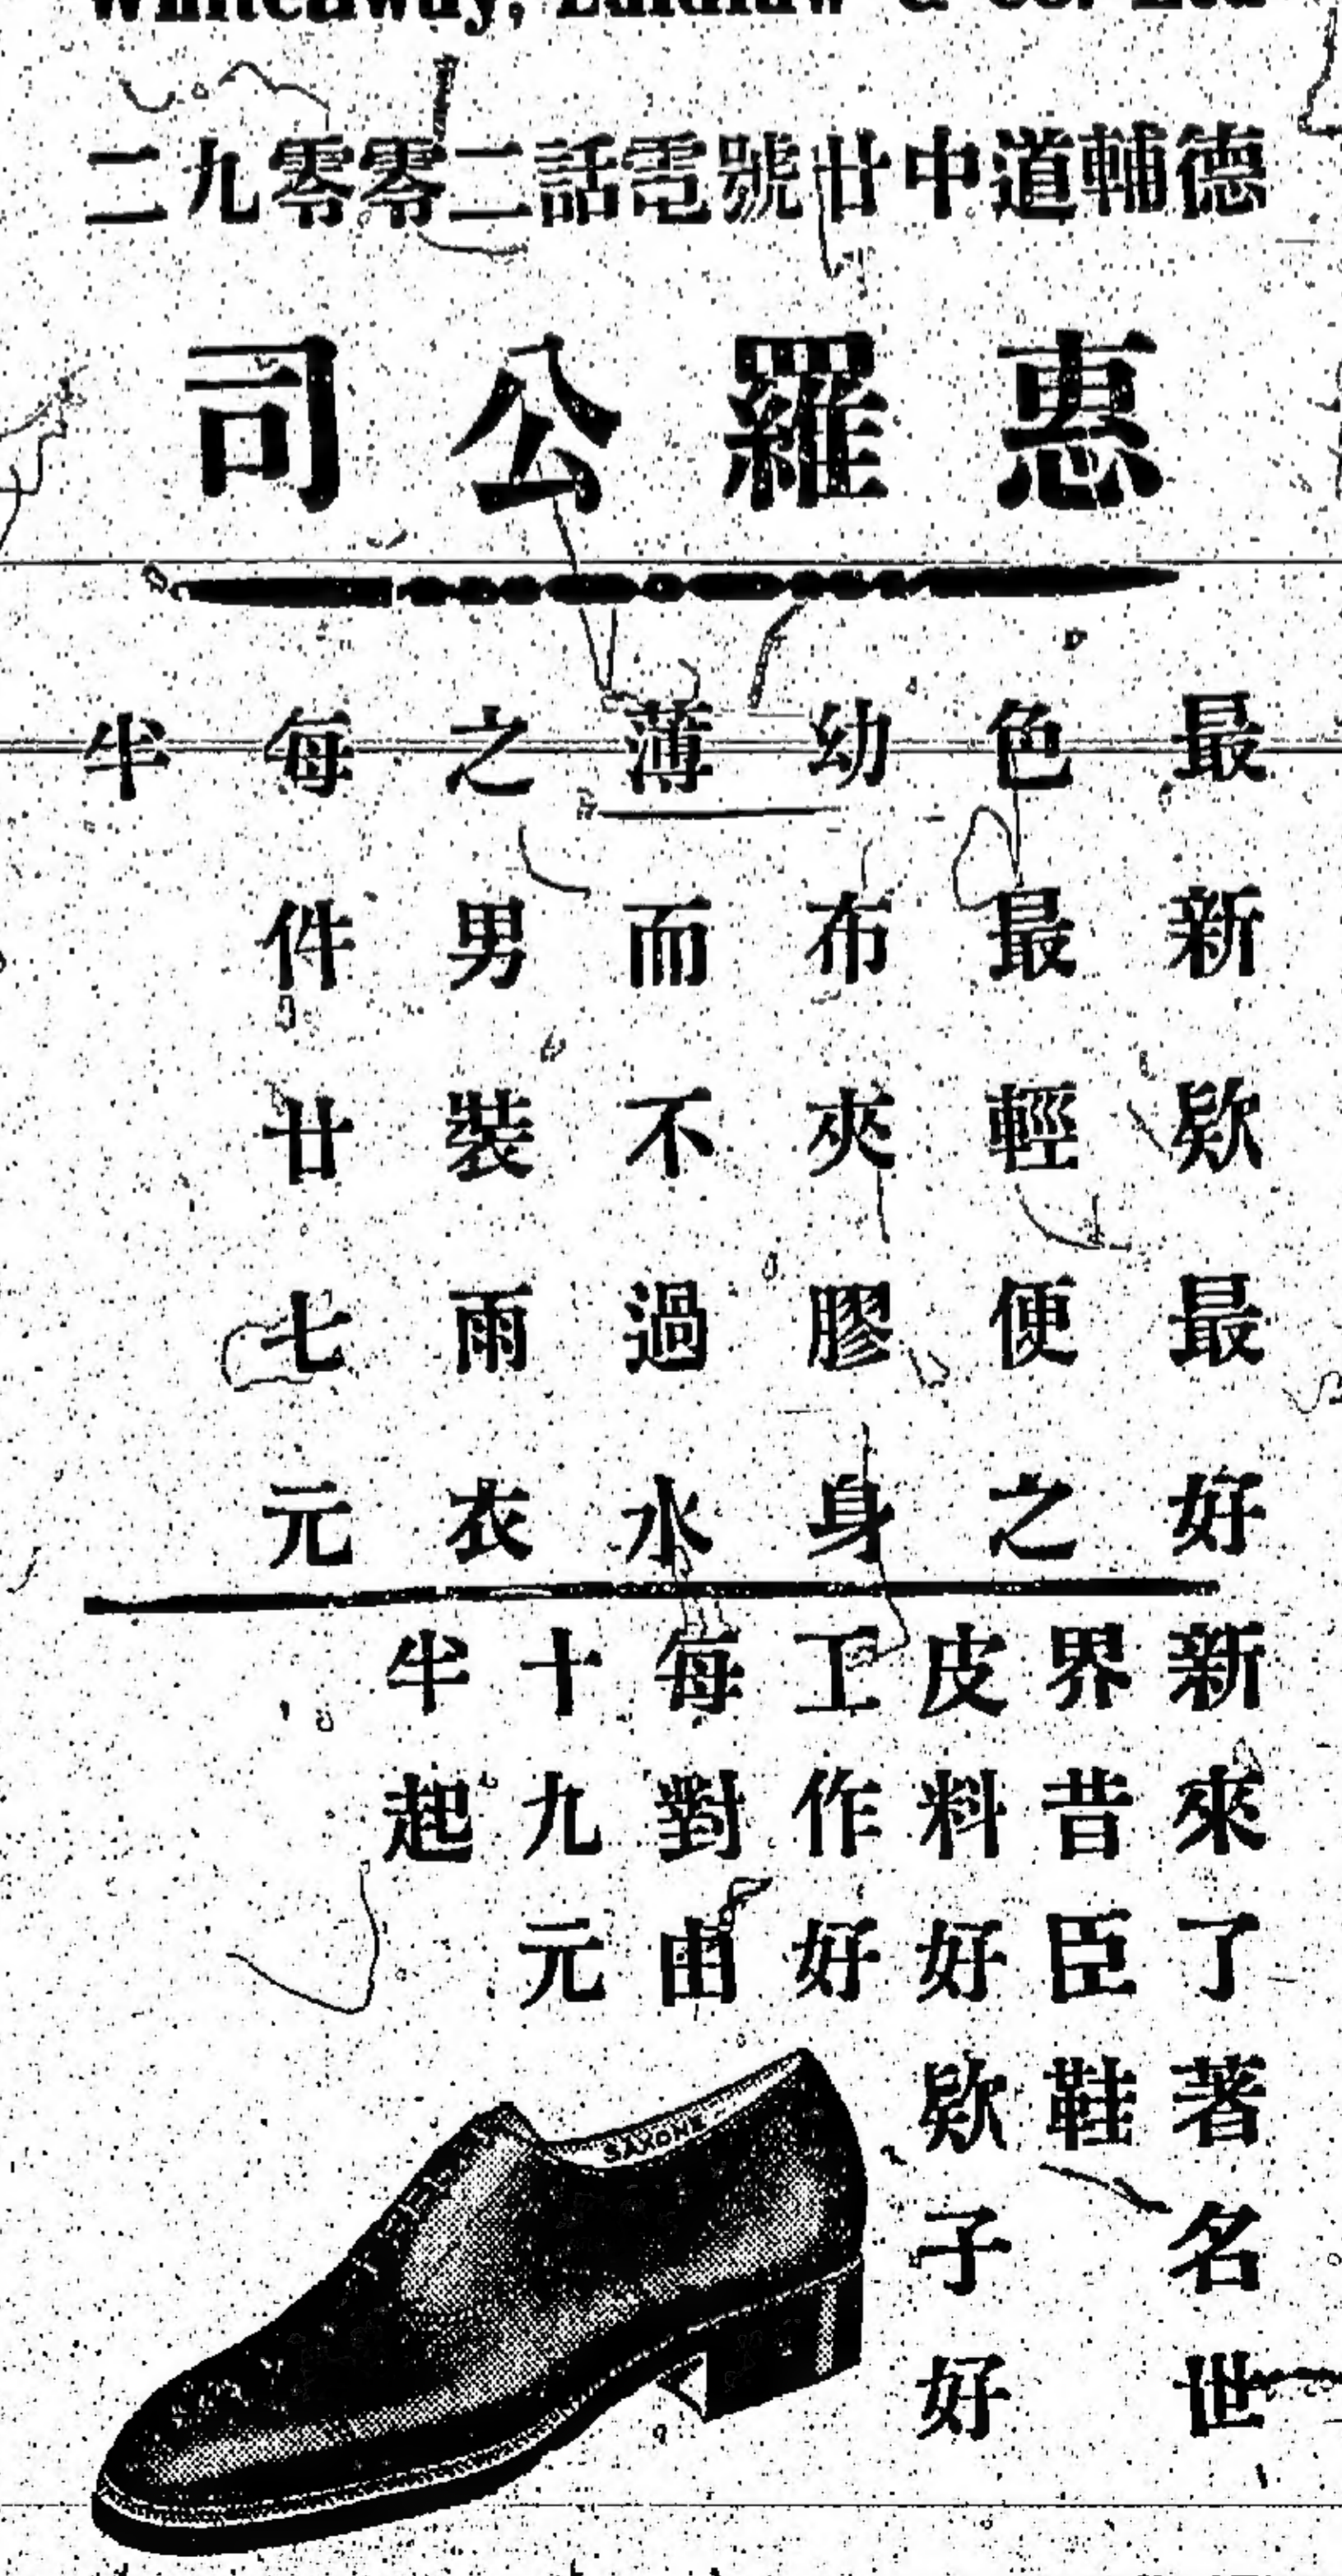 Whiteaway, Laidlaw & Co. Ltd
德輔道中廿號電話二零零九二
惠羅公司
最新欵最好
色最輕便之
幼布夾膠身
薄而不過水
之男裝雨衣
每件廿七元
半
新來了著名世
界昔臣鞋
皮料好欵子好
工作好
每對由
十九元
半起
SAXONE